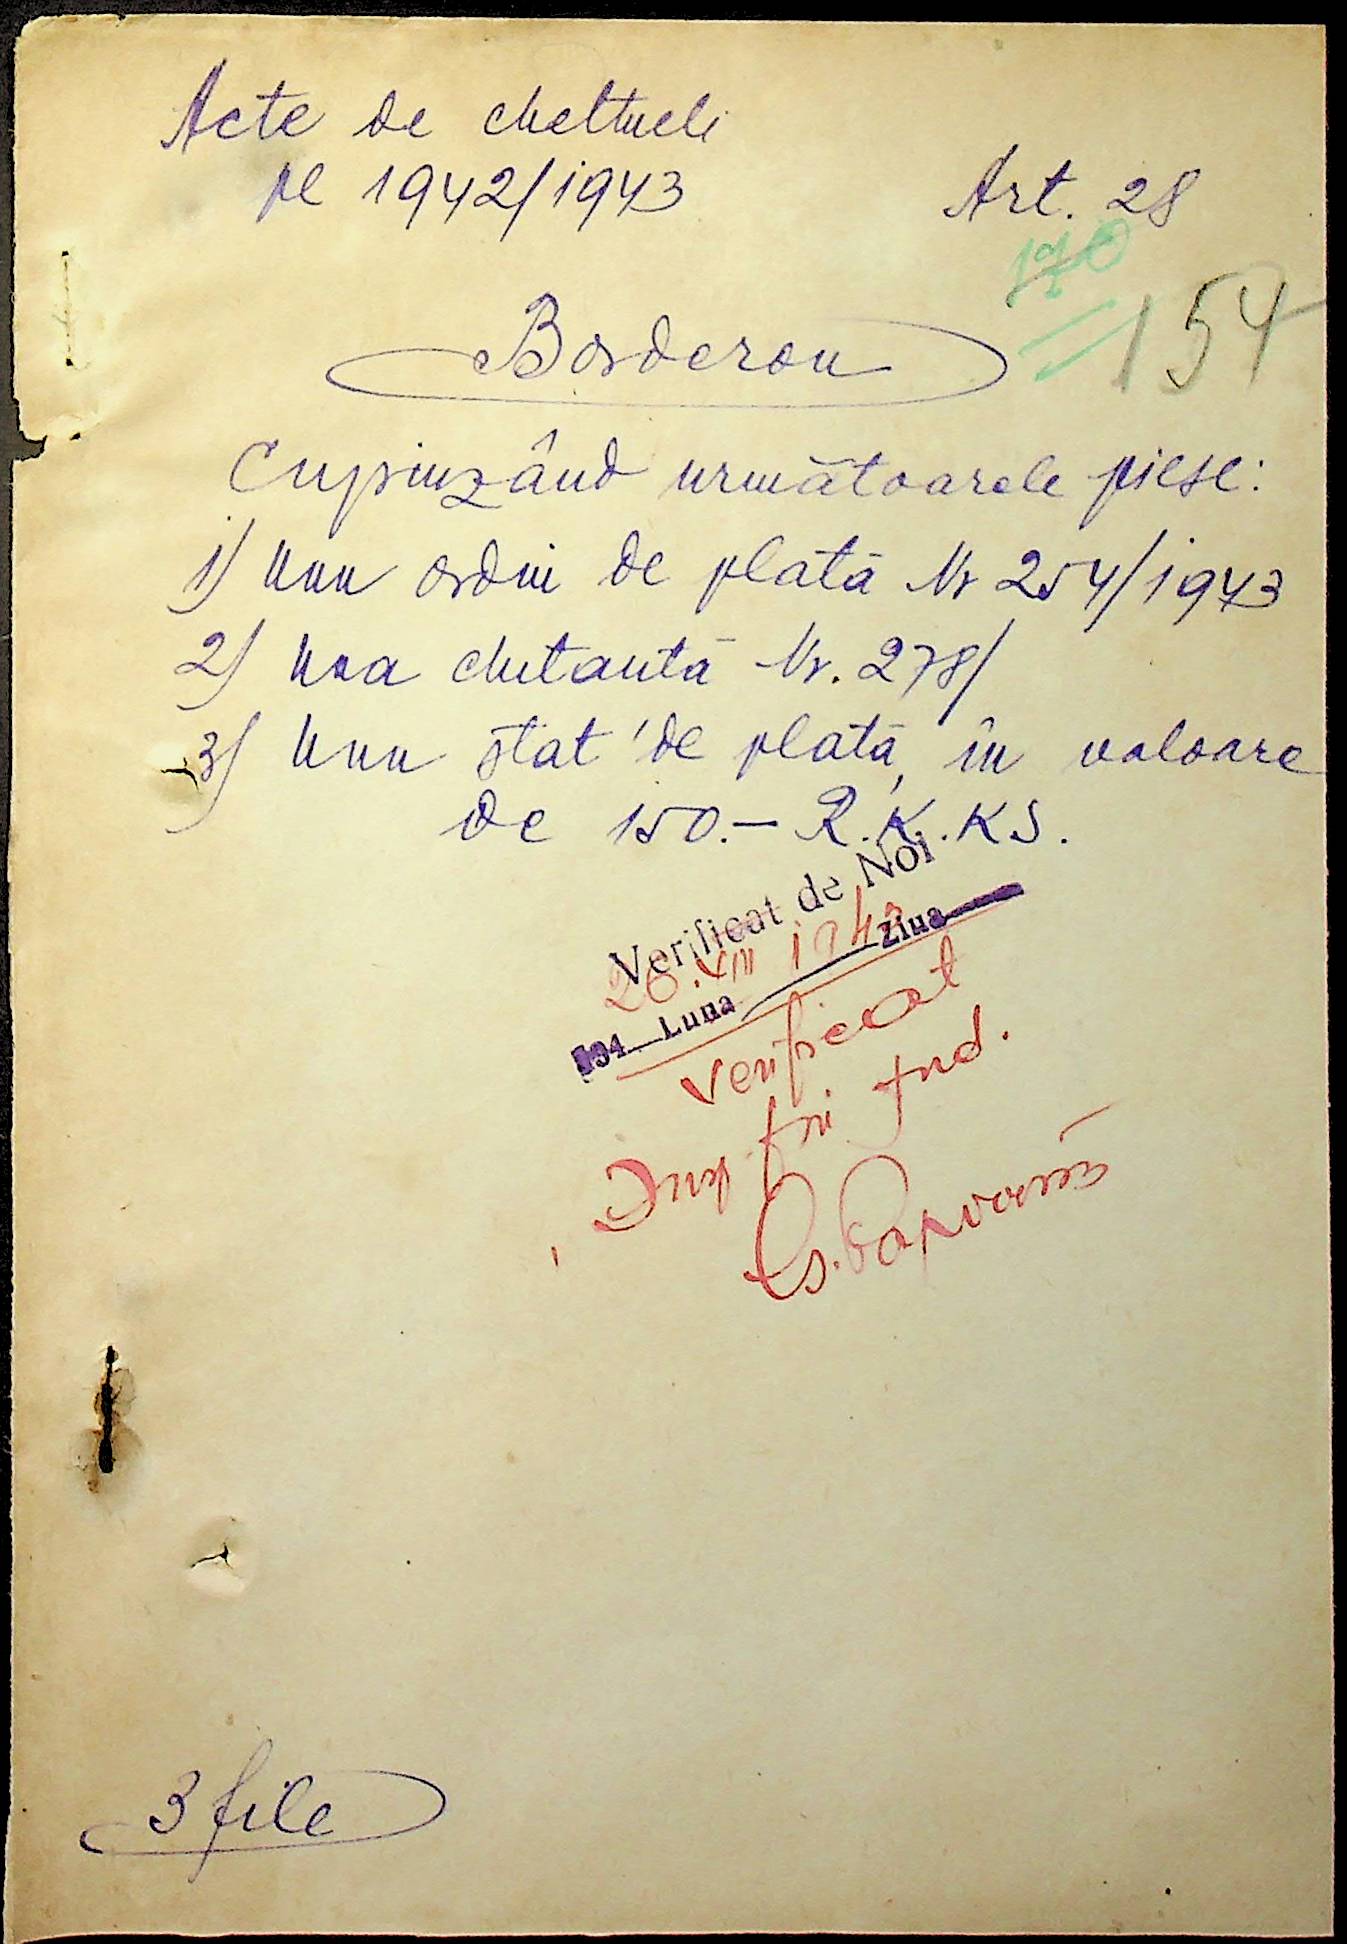 Acte de cheltueli
pe 1942/1943
Art. 28
190
154
Borderou
Cuprinzând următoarele piese:
1) Unu ordin de plată Nr 254/1943
2) Una chitantă Nr. 278/
3) Unu ștat de plată, în valoare
de 150.— R.K.KS.
Verificat de Noi
26.VII 194
Ziua
194 Luna
Verificat
Insp fin Jud.
3 file